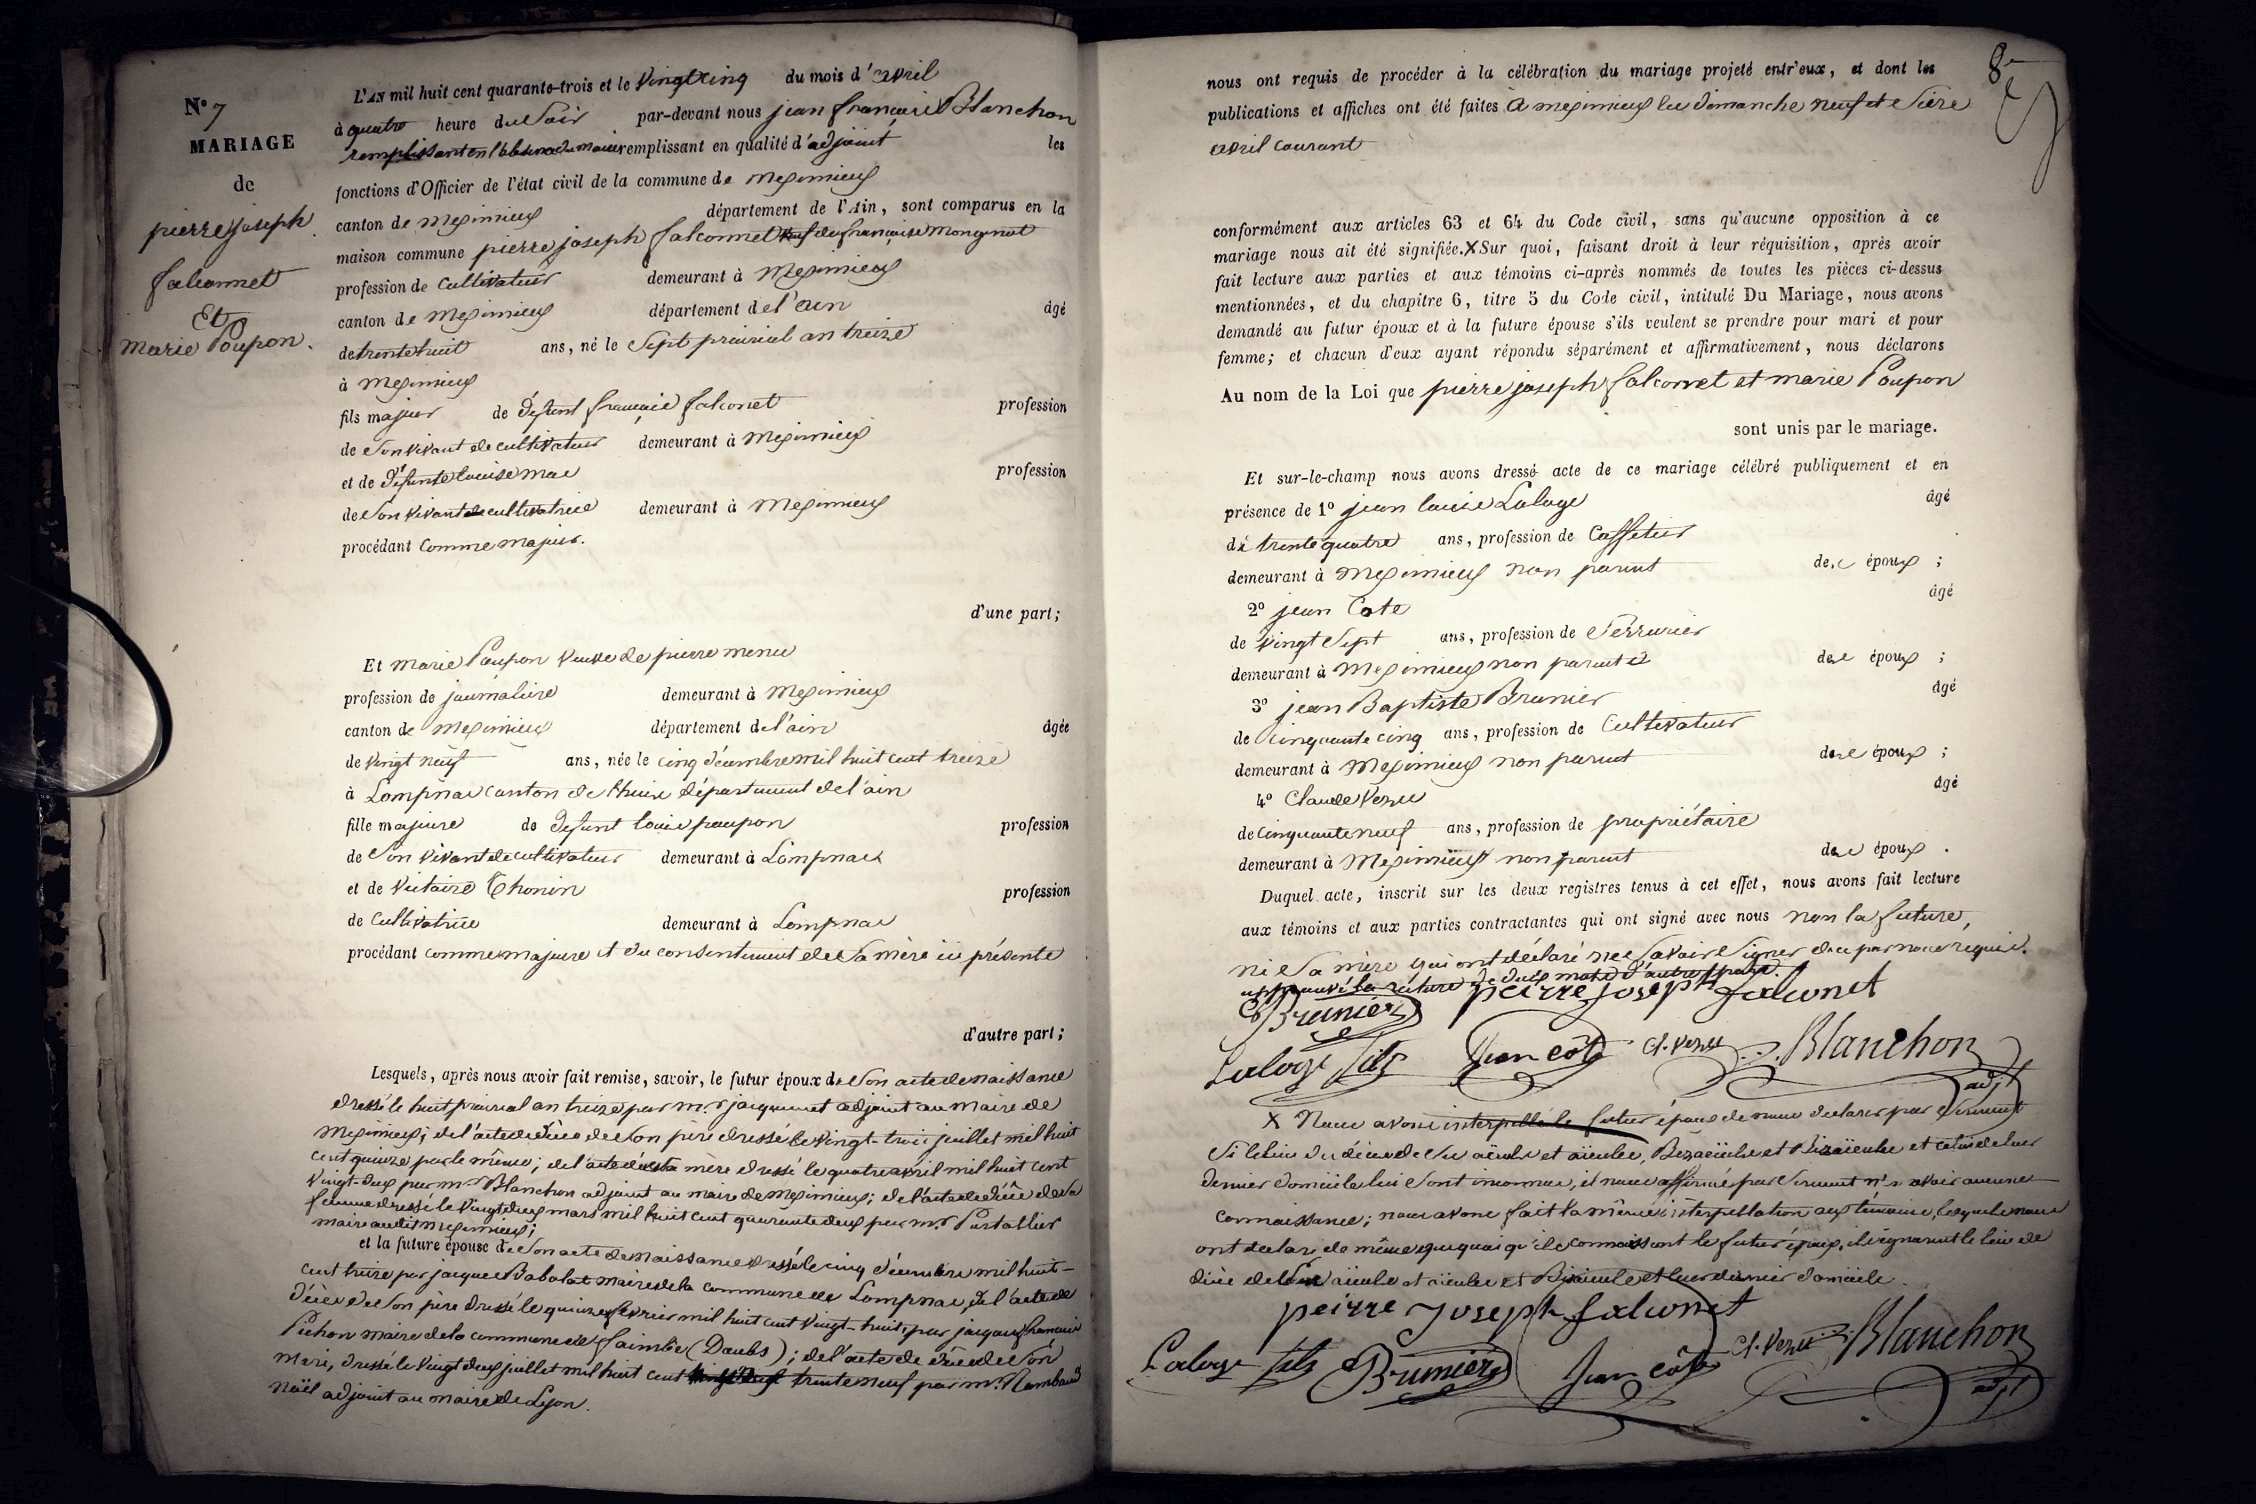 N° 7
MARIAGE
de
pierre joseph
falconnet
Et
Marie Poupon.
L'AN mil huit cent quarante-trois et le vingt cinq du mois d'avril
à quatre heure du Soir par-devant nous jean françois Blanchon
remplissant en l'absence du maire remplissant en qualité d'adjoint les
fonctions d'Officier de l'état civil de la commune de Meximieux
canton de Meximieux département de l'Ain, sont comparus en la
maison commune pierre joseph falconnet veuf de françoise Monginot
profession de cultivateur demeurant à Meximieux
canton de Meximieux département de l'ain âgé
de trente huit ans, né le Sept prairial an treize
à Meximieux
fils majeur de défunt françois falconet profession
de Son vivant de cultivateur demeurant à Meximieux
et de défunte louise profession
de Son vivant de cultivatrice demeurant à Meximieux
procédant comme majeur.
d'une part;
Et Marie Poupon veuve de pierre menu
profession de journalière demeurant à Meximieux
canton de Meximieux département de l'ain âgée
de vingt neuf ans, née le cinq décembre mil huit cent treize
à Lompnas canton de lhuis département de l'ain
fille majeure de défunt louis poupon profession
de Son vivant de cultivateur demeurant à Lompnas
et de victoire Thonin profession
de cultivatrice demeurant à Lompnas
procédant comme majeure et du consentement de Sa mère ici présente
d'autre part;
Lesquels, après nous avoir fait remise, savoir, le futur époux de Son acte de naissance
dressé le huit prairial an treize par mr. jacquemet adjoint au Maire de
Meximieux; de l'acte de décès de Son père dressé le vingt-trois juillet mil huit
cent quinze par le même; de l'acte de sa mère dressé le quatre avril mil huit cent
vingt-deux par mr Blanchon adjoint au maire de Meximieux; de l'acte de décès de Sa
femme dressé le vingt deux mars mil huit cent quarante deux par mr Portallier
maire audit Meximieux;
et la future épouse de Son acte de naissance dressé le cinq décembre mil huit-
cent treize par jacques Babolat maire de la commune de Lompnas, de l'acte de
décès de Son père dressé le quinze février mil huit cent vingt-huit, par jacques françois
Pichon maire de la commune de (Doubs); de l'acte de décès de Son
Mari, dressé le vingt deux juillet mil huit cent trente neuf par mr. Rambaud
Noël adjoint au maire de Lyon.
8
nous ont requis de procéder à la célébration du mariage projeté entr'eux, et dont les
publications et affiches ont été faites à meximieux les dimanche neuf et Seize
avril courant
conformément aux articles 63 et 64 du Code civil, sans qu'aucune opposition à ce
mariage nous ait été signifiée. X Sur quoi, faisant droit à leur réquisition, après avoir
fait lecture aux parties et aux témoins ci-après nommés de toutes les pièces ci-dessus
mentionnées, et du chapitre 6, titre 5 du Code civil, intitulé Du Mariage, nous avons
demandé au futur époux et à la future épouse s'ils veulent se prendre pour mari et pour
femme; et chacun d'eux ayant répondu séparément et affirmativement, nous déclarons
Au nom de la Loi que pierre joseph falconnet et marie Poupon
sont unis par le mariage.
Et sur-le-champ nous avons dressé acte de ce mariage célébré publiquement et en
présence de 1° jean louis Laloge âgé
de trente quatre ans, profession de Caffetier
demeurant à Meximieux non parent des époux;
2° jean Cote âgé
de vingt Sept ans, profession de Serrurier
demeurant à Meximieux non parent des époux;
3° jean Baptiste Brunier âgé
de cinquante cinq ans, profession de Cultivateur
demeurant à Meximieux non parent des époux;
4° Claude Venu âgé
de cinquante neuf ans, profession de propriétaire
demeurant à Meximieux non parent des époux.
Duquel acte, inscrit sur les deux registres tenus à cet effet, nous avons fait lecture
aux témoins et aux parties contractantes qui ont signé avec nous non la future,
ni Sa mère qui ont déclaré ne Savoir Signer de ce par nous requis.
approuvé la rature de deux mots d'autre part.
Brunier peirre joseph falconet
Laloge fils Jean côte Cl. Venu Blanchon
adjt
X Nous avons interpellé le futur époux de nous declarer par Serment
Si le lieu du décès de Ses aïeuls et aïeules, Bizaïeuls et Bizaïeules et celui de leur
dernier domicile lui Sont inconnus, il nous affirmé par Serment n'en avoir aucune
connaissance; nous avons fait la même interpellation aux témoins, lesquels nous
ont déclaré de même que quoi qu'ils connaissent le futur époux, ils ignorent le lieu de
décès de Ses aïeuls et aïeules et Bisaïeuls et leur dernier domicile.
peirre Joseph falconet
Laloge fils Brunier Jean côte Cl. Venu Blanchon
adjt